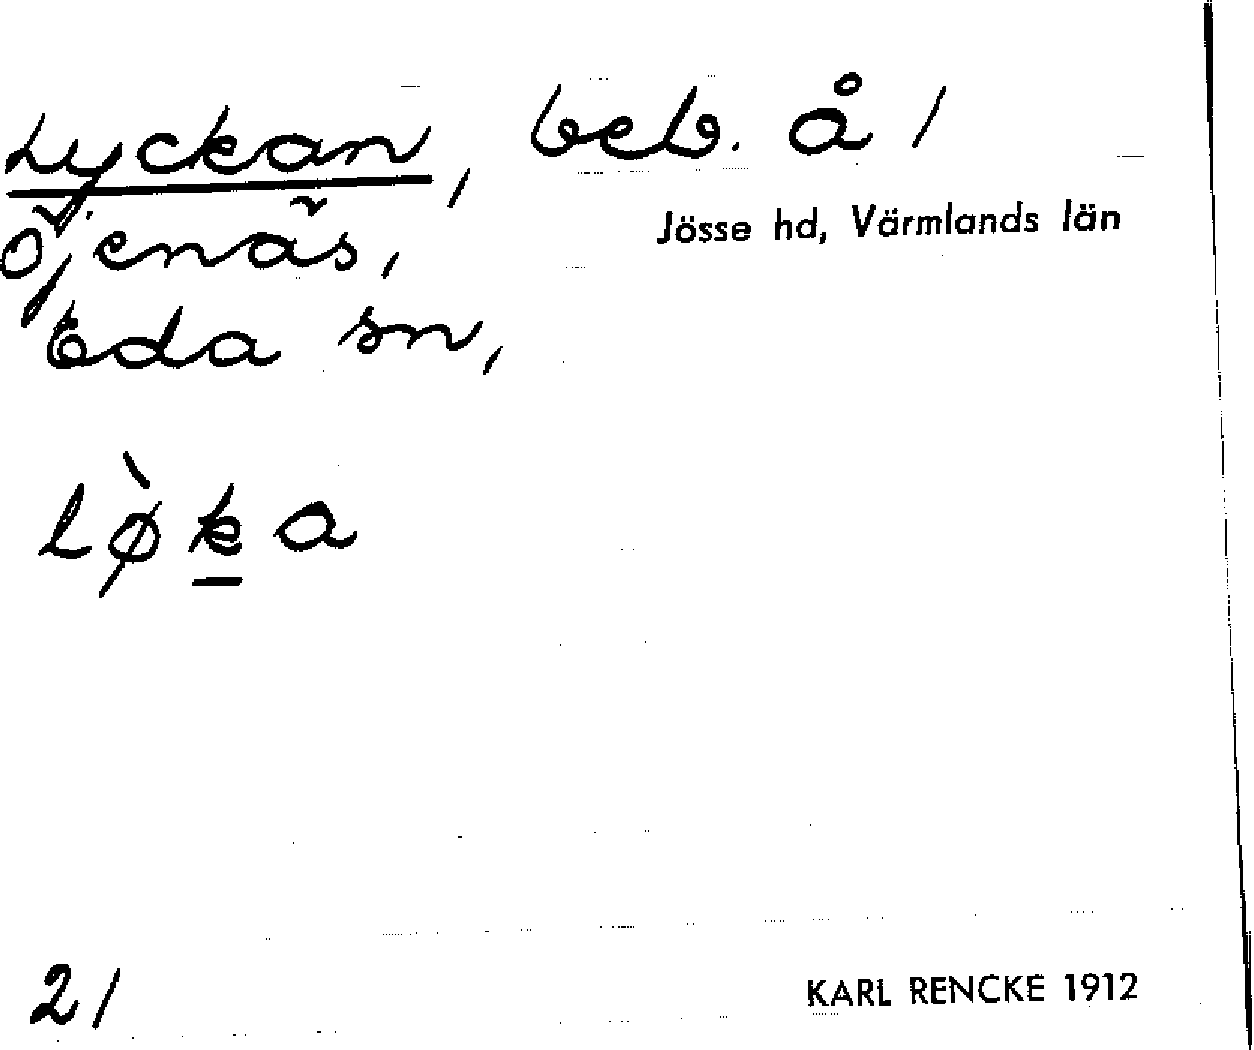 Lyckan, beb. å 1
Jösse hd, Värmlands län
Öjenäs,
Eda sn,
lø̀k̲a
21
KARL RENCKE 1912